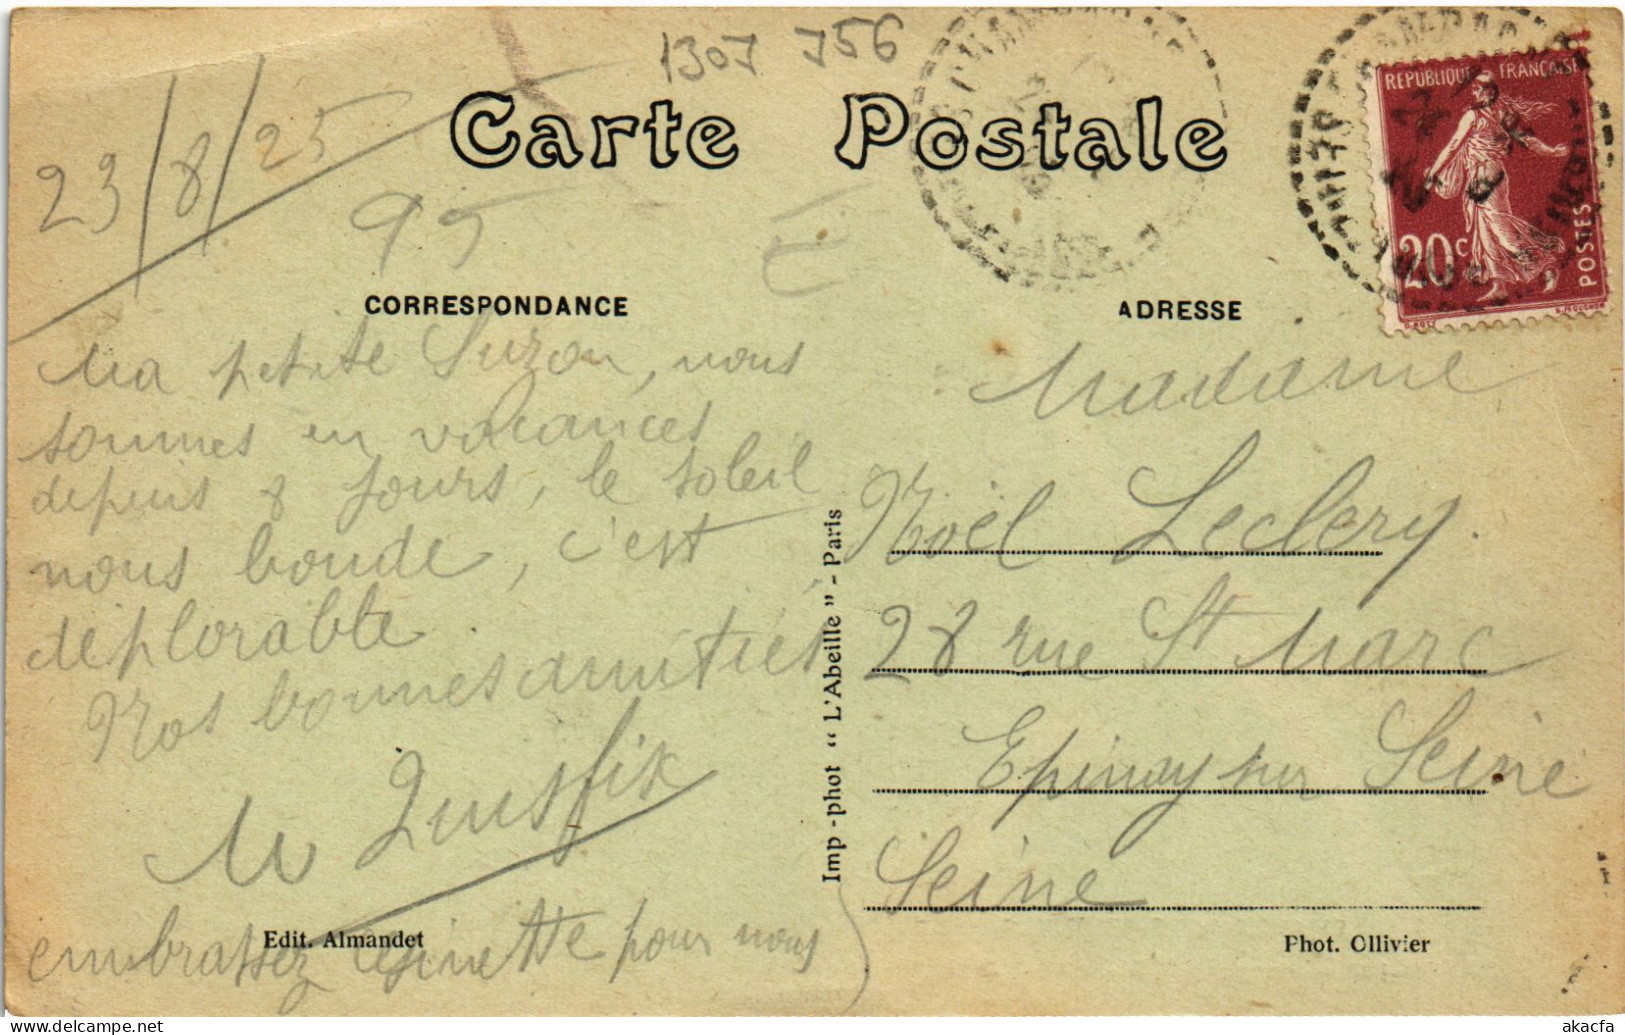 1307 756
Carte Postale
23/8/25
95
REPUBLIQUE FRANÇAISE
20c
POSTES
CORRESPONDANCE
ADRESSE
Ma petite Suzon, nous
sommes en vacances
depuis 8 jours, le soleil
nous boude, c'est
déplorable.
Nos bonnes amitiés
M
embrassez pour nous
Imp-phot "L'Abeille" - Paris
Madame
Noël Leclery.
28 rue St Marc
Epinay sur Seine
Seine
Edit. Almandet
Phot. Ollivier
akacfa